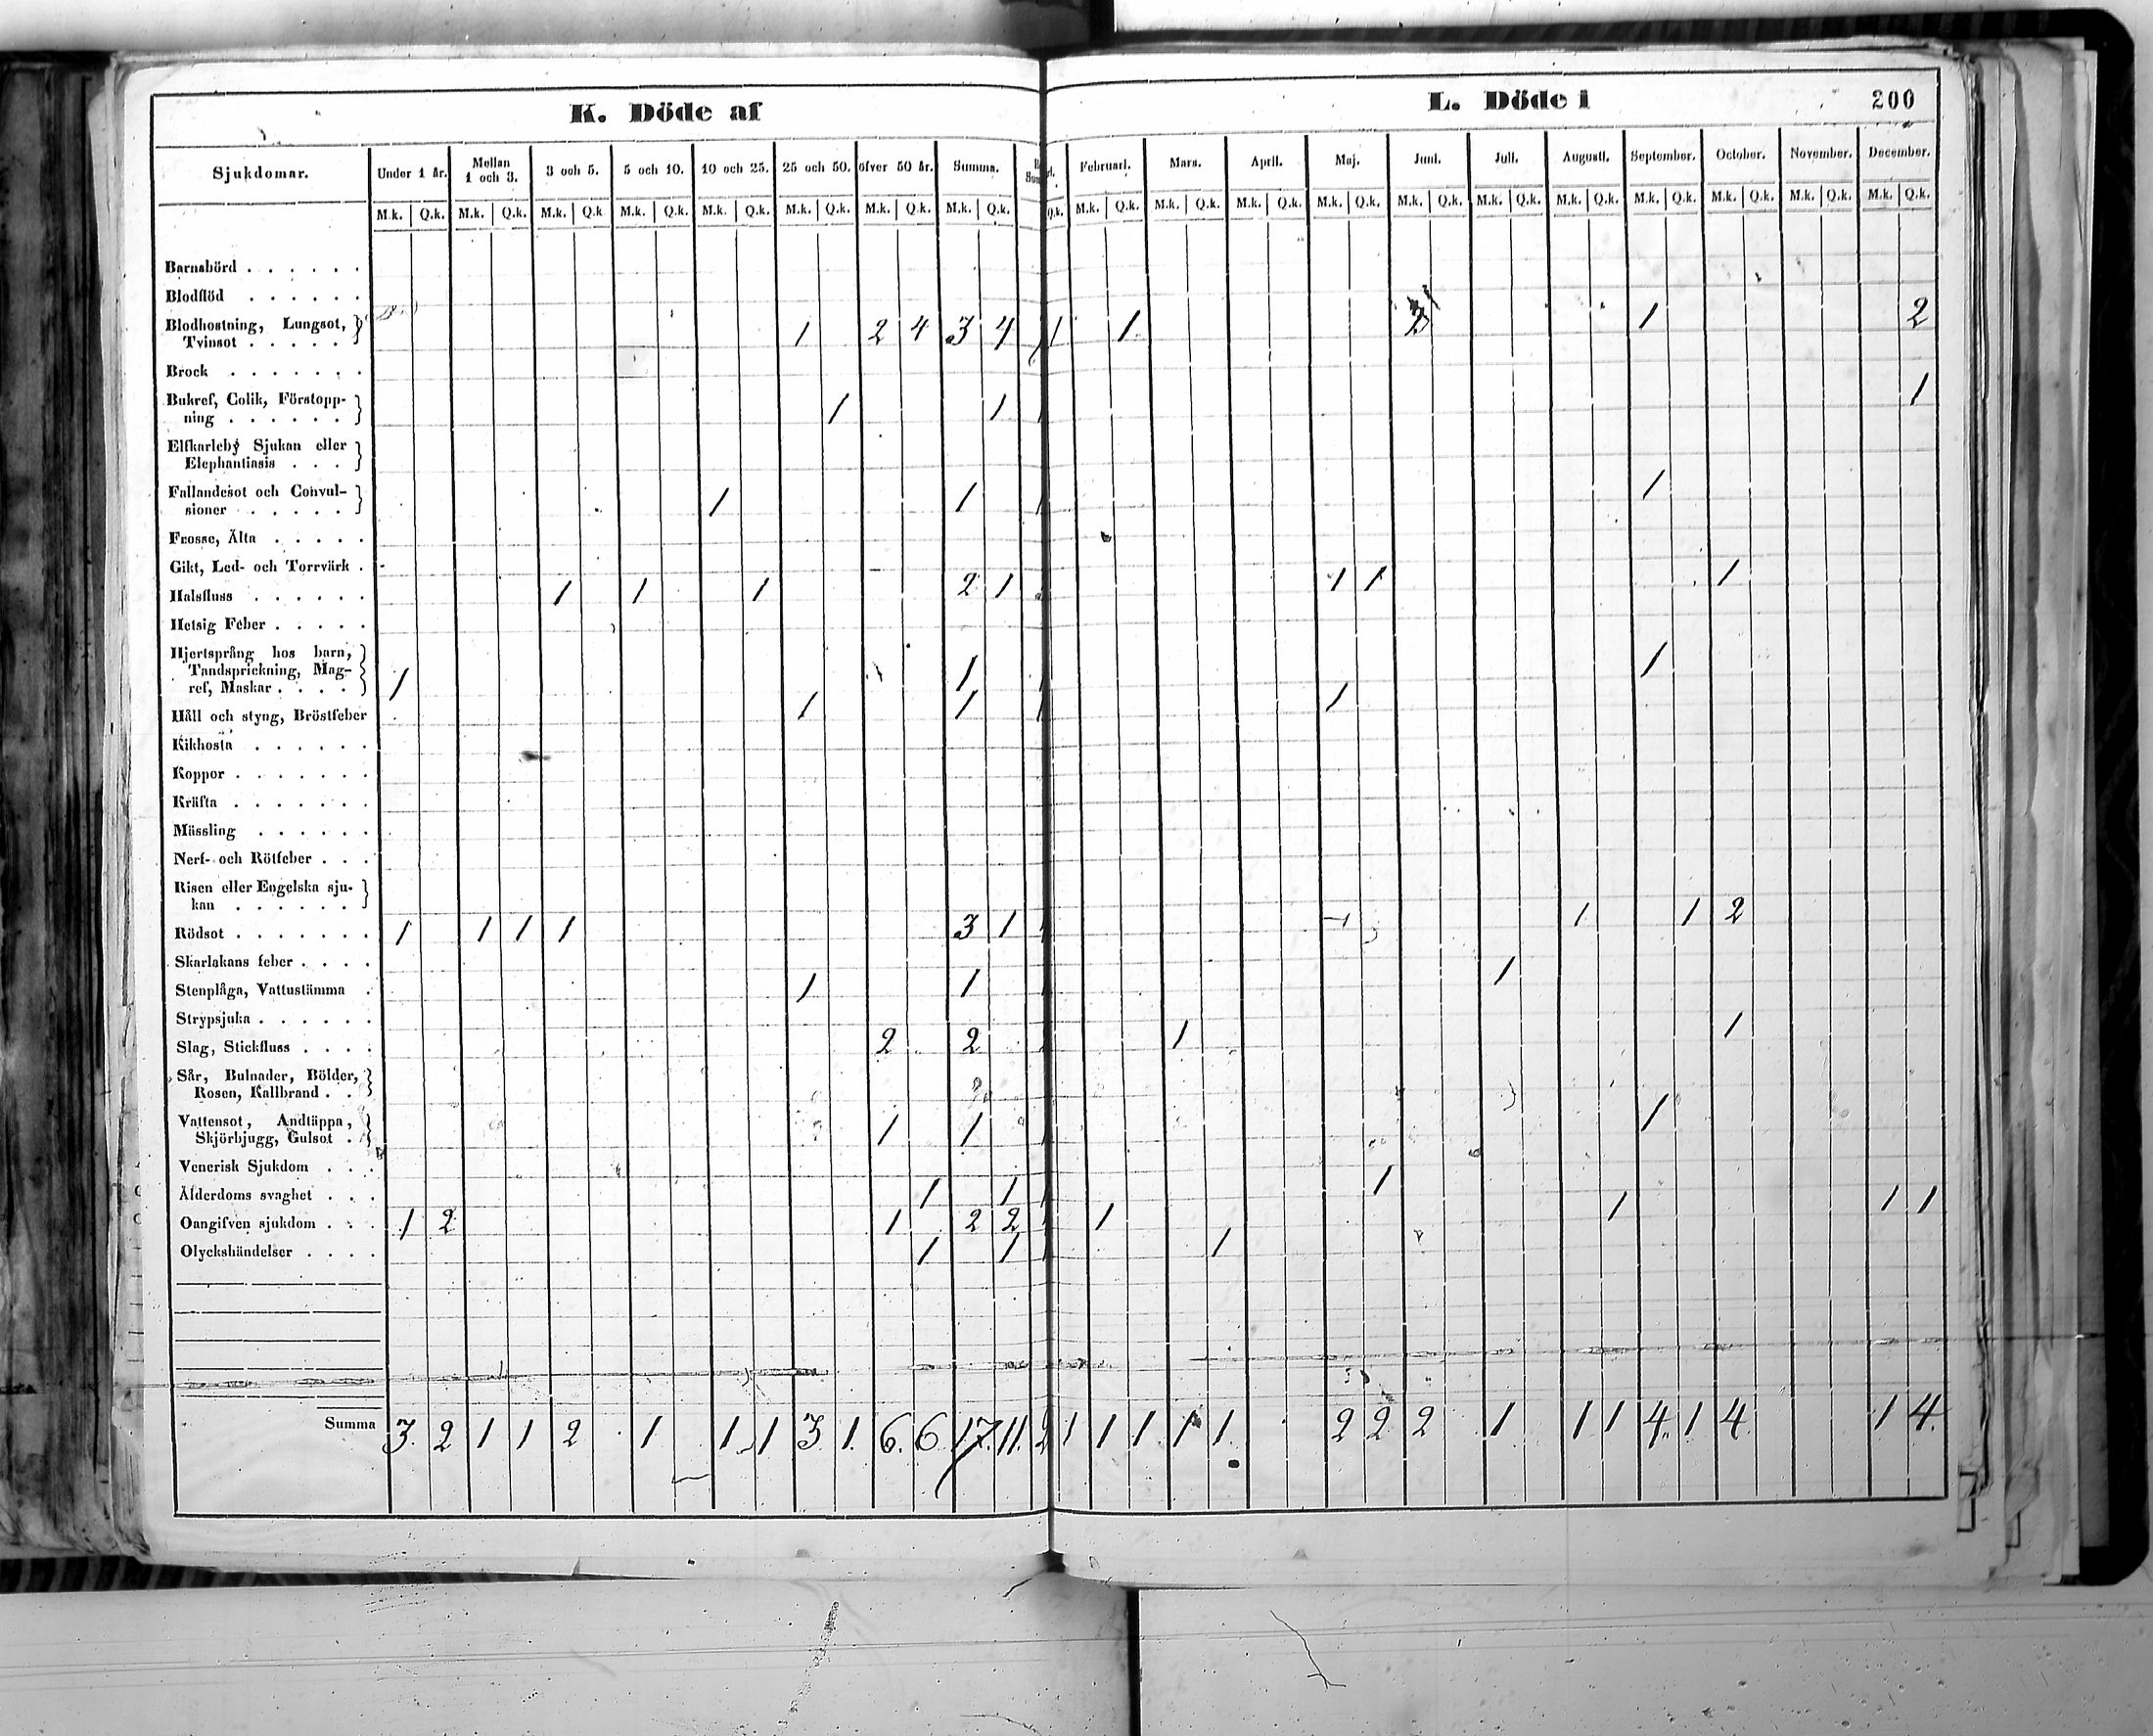 K. Döde af
L. Döde i
200
Sjukdomar. Under 1 år. Mellan 1 och 3. 3 och 5. 5 och 10. 10 och 25. 25 och 50. öfver 50 år. Summa. Februari. Mars. April. Maj. Juni. Juli. Augusti. September. October. November. December.
M.k. Q.k. M.k. Q.k. M.k. Q.k M.k. Q.k. M.k. Q.k. M.k. Q.k. M.k. Q.k. M.k. Q.k. Q.k. M.k. Q.k. M.k. Q.k. M.k. Q.k. M.k. Q.k. M.k. Q.k. M.k. Q.k. M.k. Q.k. M.k. Q.k. M.k. Q.k. M.k. Q.k. M.k. Q.k.
Barnsbörd . . . . . .
Blodflöd . . . . . .
Blodhostning, Lungsot,
Tvinsot . . . . . 1 2 4 3 4 1 1 2 1 2
Brock . . . . . . .
Bukref, Colik, Förstopp-
ning . . . . . . 1 1 1
Elfkarleby Sjukan eller
Elephantiasis . . .
Fallandesot och Convul-
sioner . . . . . 1 1 1
Frosse, Älta . . . . .
Gikt, Led- och Torrvärk .
Halsfluss . . . . . . 1 1 1 2 1 1 1 1
Hetsig Feber . . . . .
Hjertsprång hos barn,
Tandsprickning, Mag-
ref, Maskar . . . . 1 1 1
Håll och styng, Bröstfeber 1 1 1
Kikhosta . . . . . .
Koppor . . . . . . .
Kräfta . . . . . . .
Mässling . . . . . .
Nerf- och Rötfeber . . .
Risen eller Engelska sju-
kan . . . . . .
Rödsot . . . . . . . 1 1 1 1 3 1 1 1 2
Skarlakans feber . . . .
Stenplåga, Vattustämma . 1 1 1
Strypsjuka . . . . . .
Slag, Stickfluss . . . . 2 2 1 1
Sår, Bulnader, Bölder,
Rosen, Kallbrand . .
Vattensot, Andtäppa,
Skjörbjugg, Gulsot . 1 1 1
Venerisk Sjukdom . . .
Ålderdoms svaghet . . . 1 1 1
Oangifven sjukdom . . . 1 2 1 2 2 1 1 1 1
Olyckshändelser . . . . 1 1 1
Summa 3. 2 1 1 2 1 1 1 3 1. 6. 6 17. 11. 1 1 1 1 1 2 2 2 1 1 1 4. 1 4 1 4.